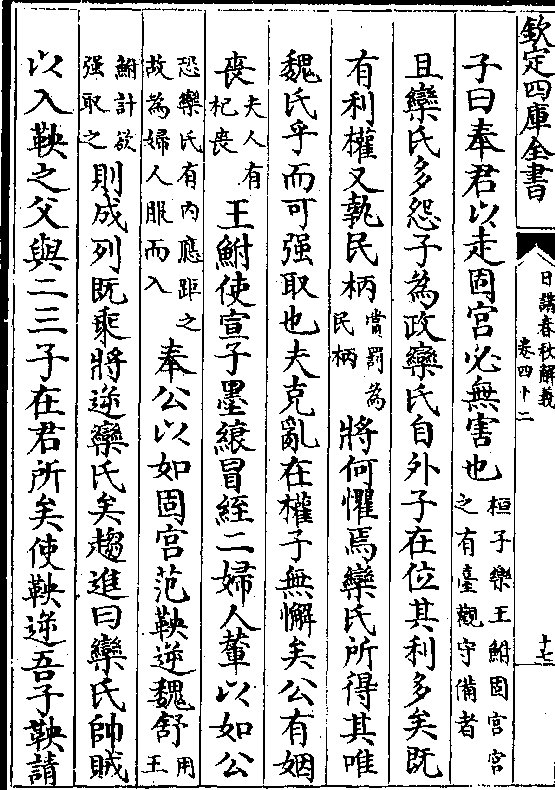 欽定四庫全書
日講春秋解義
卷四十二
十七
子曰奉君以走固宮必無害也桓子樂王鮒固宮宮之有臺觀守備者
且欒氏多怨子為政欒氏自外子在位其利多矣既
有利權又執民柄賞罰為民柄將何懼焉欒氏所得其唯
魏氏乎而可强取也夫克亂在權子無懈矣公有姻
喪夫人有杞喪王鮒使宣子墨縗冒絰二婦人輦以如公
恐欒氏有内應距之故為婦人服而入奉公以如固宮范鞅逆魏舒用王
鮒計欲强取之則成列既乘將逆欒氏矣趨進曰欒氏帥賊
以入鞅之父與二三子在君所矣使鞅逆吾子鞅請